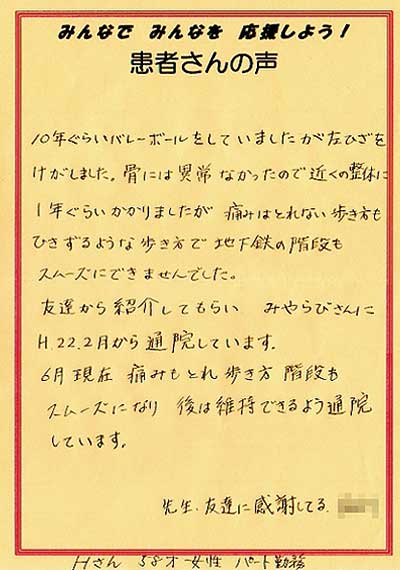 みんなで みんなを 応援しよう！
患者さんの声
10年ぐらいバレーボールをしていましたが左ひざを
けがしました。骨には異常なかったので近くの整体に
1年ぐらいかかりましたが 痛みはとれない歩き方も
ひきずるような歩き方で地下鉄の階段も
スムーズにできませんでした。
友達から紹介してもらい みやらびさんに
H.22.2月から通院しています。
6月現在 痛みもとれ歩き方 階段も
スムーズになり 後は維持できるよう通院
しています。
先生、友達に感謝してる。
Hさん 58才 女性 パート勤務